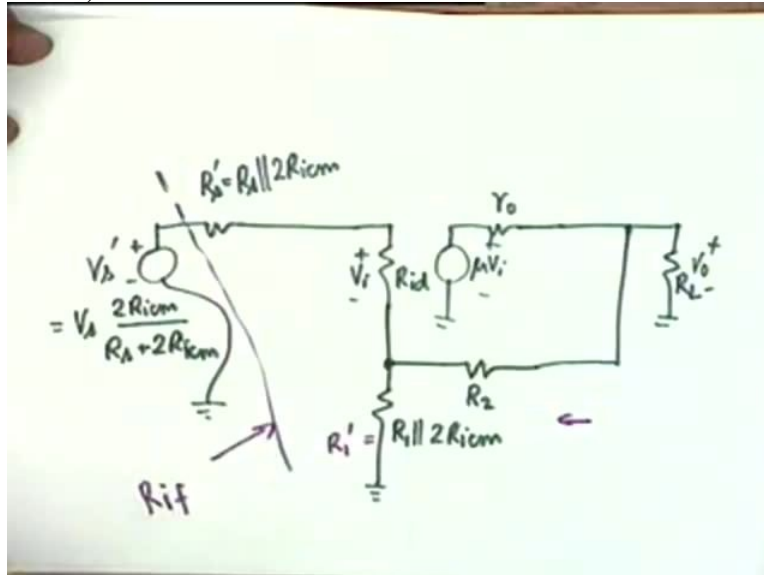 Rs' = Rs || 2Ricm
r0
Vs' + -
= Vs 2Ricm / Rs + 2Ricm
+ Vi -
Rid
+ μVi -
RL
V0 + -
R2
R1' = R1 || 2Ricm
Rif